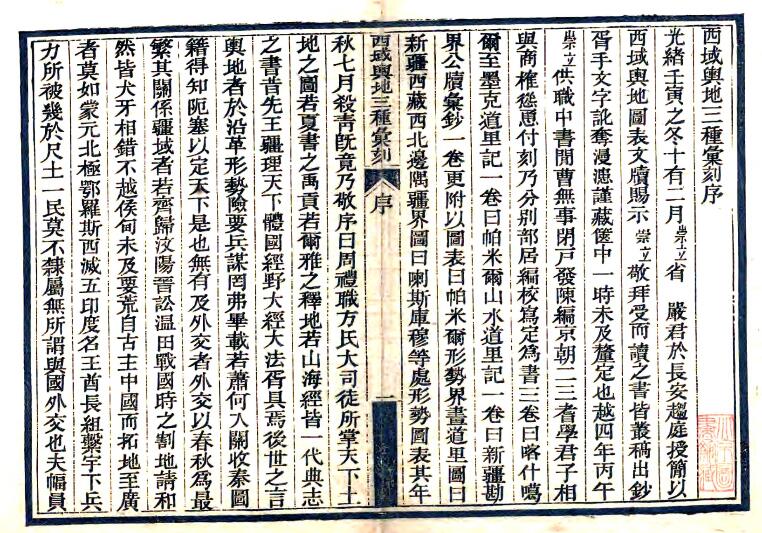 西域輿地三種彙刻序
光緒壬寅之冬十有二月崇立省 嚴君於長安趨庭授簡以
西域輿地圖表文牘賜示崇立敬拜受而讀之書皆叢稿出鈔
胥手文字訛奪漫漶謹藏篋中一時未及釐定也越四年丙午
崇立供職中書閒曹無事閉戶發陳編京朝二三耆學君子相
與商榷慫恿付刻乃分别部居編校寫定為書三卷曰喀什噶
爾至墨克道里記一卷曰帕米爾山水道里記一卷曰新疆勘
界公牘彙鈔一卷更附以圖表曰帕米爾形勢界畫道里圖曰
新疆西藏西北邊隅疆界圖曰喇斯庫穆等處形勢圖表其年
西域輿地三種彙刻 序 一
秋七月殺青旣竟乃敬序曰周禮職方氏大司徒所掌天下土
地之圖若夏書之禹貢若爾雅之釋地若山海經皆一代典志
之書昔先王疆理天下體國經野大經大法胥具焉後世之言
輿地者於沿革形勢險要兵謀罔弗畢載若蕭何入關收秦圖
籍得知阨塞以定天下是也無有及外交者外交以春秋為最
繁其關係疆域者若齊歸汶陽晉訟温田戰國時之割地請和
然皆犬牙相錯不越侯甸未及要荒自古主中國而拓地至廣
者莫如蒙元北極鄂羅斯西滅五印度名王酋長組繫宇下兵
力所被幾於尺土一民莫不隸屬無所謂與國外交也夫幅員